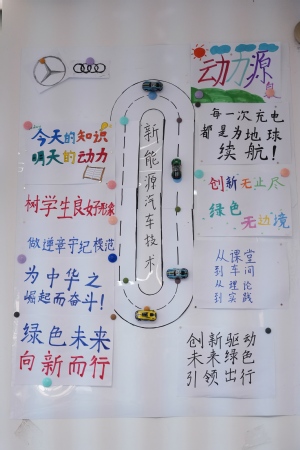 今天的知识
明天的动力
树学生良好形象
做遵章守纪模范
为中华之
崛起而奋斗！
绿色未来
向新而行
新能源汽车技术
动力源
每一次充电
都是为地球
续航！
创新无止尽
绿色
无边境
从课堂
到车间
从理论
到实践
创新驱动
未来绿色
引领出行